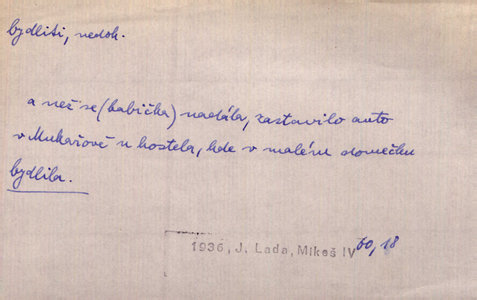 bydliti, nedok.
a než se (babička) nadála, zastavilo auto
v Mukařově u kostela, kde v malém domečku
bydlila.
1936, J. Lada, Mikeš IV 60, 18